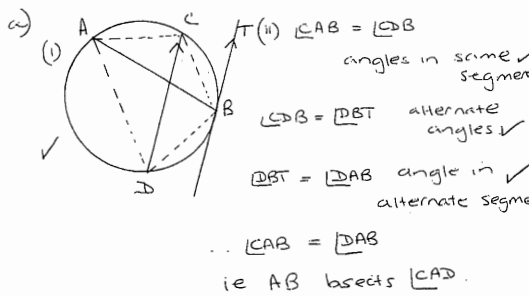 a)
(i)
A
C
T
B
D
✓
(ii) ∠CAB = ∠CDB
angles in same ✓
segmen
∠CDB = ∠DBT alternate
angles ✓
∠DBT = ∠DAB angle in ✓
alternate segme
∴ ∠CAB = ∠DAB
ie AB bisects ∠CAD.